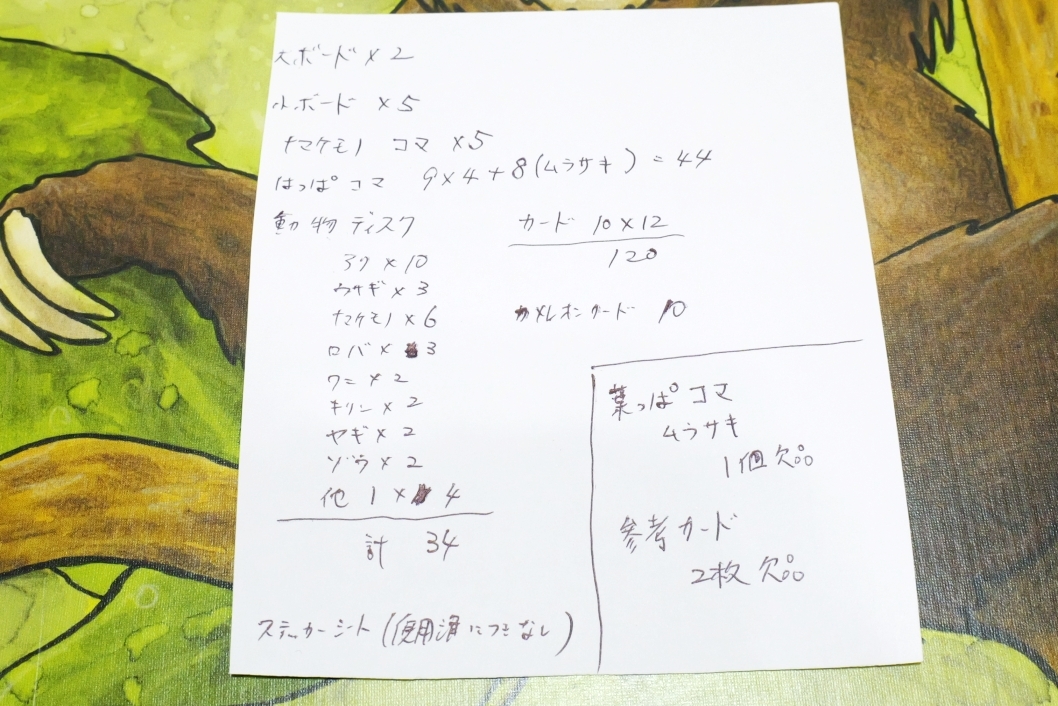 大ボード×2
小ボード ×5
ナマケモノ コマ ×5
はっぱ コマ 9×4+8(ムラサキ)=44
動物ディスク
アリ×10
ウサギ×3
ナマケモノ×6
ロバ× 3
ワニ×2
キリン×2
ヤギ×2
ゾウ×2
他 1× 4
計 34
ステッカーシート(使用済につきなし)
カード 10×12
120
カメレオンカード 10
葉っぱコマ
ムラサキ
1個欠品
参考カード
2枚欠品